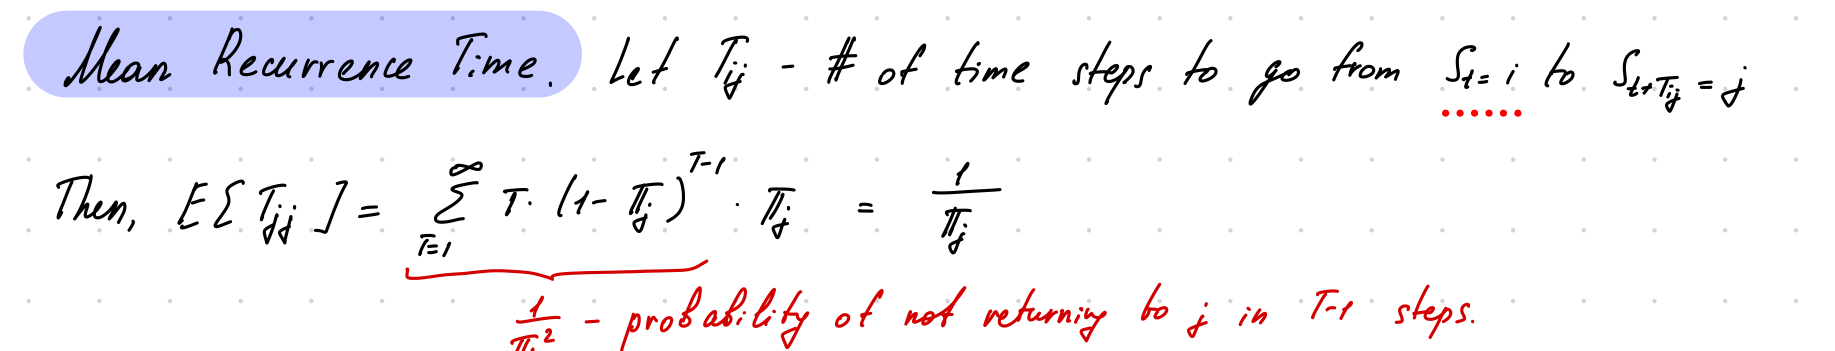 Mean Recurrence Time. Let T_{ij} - # of time steps to go from S_{t} = i to S_{t+T_{ij}} = j
Then, E[T_{jj}] = \sum_{T=1}^{∞} T · (1 - π_j)^{T-1} · π_j = \frac{1}{π_j}
\frac{1}{π_j^2} - probability of not returning to j in T-1 steps.